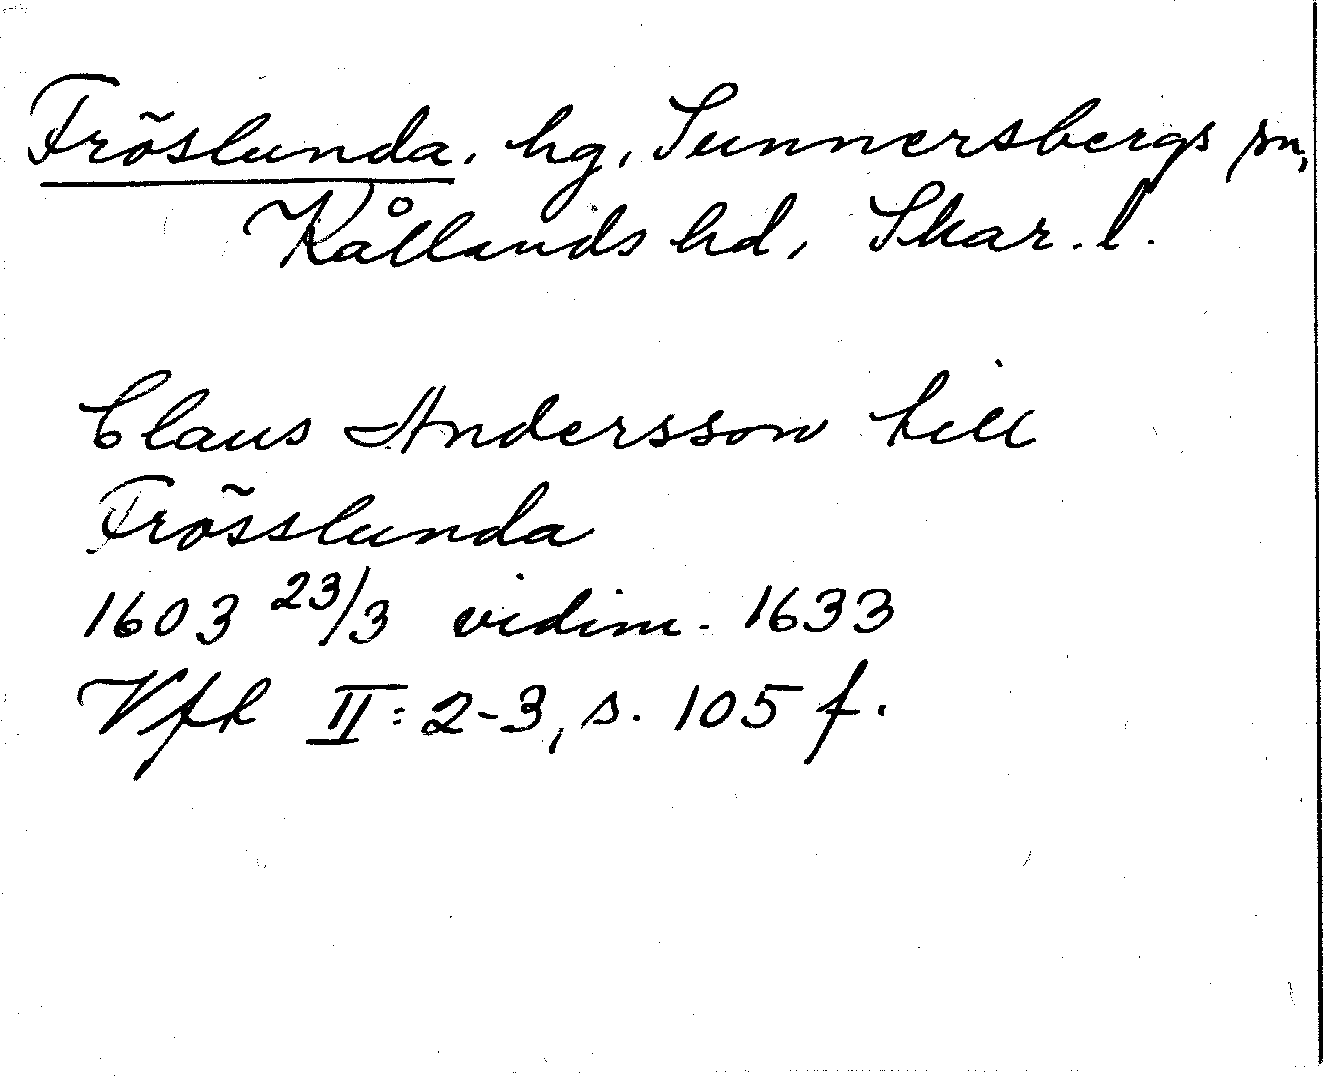 Fröslunda, hg, Sunnersbergs sn,
Kållands hd, Skar. l.
Claus Andersson till
Frösslunda
1603 23/3 vidim. 1633
Vfk II: 2-3, s. 105 f.